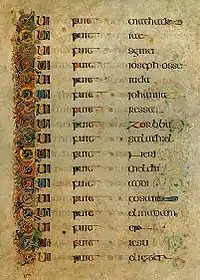 QUI fuit mathathię
QUI fuit iae
QUI fuit semei
QUI fuit ioseph osse
QUI fuit iuda
QUI fuit iohanna
QUI fuit ressa
QUI fuit zorobba
QUI fuit salathiel
QUI fuit neri
QUI fuit melchi
QUI fuit addi
QUI fuit cosam
QUI fuit elmadam
QUI fuit er
QUI fuit iesu
QUI fuit eliezer